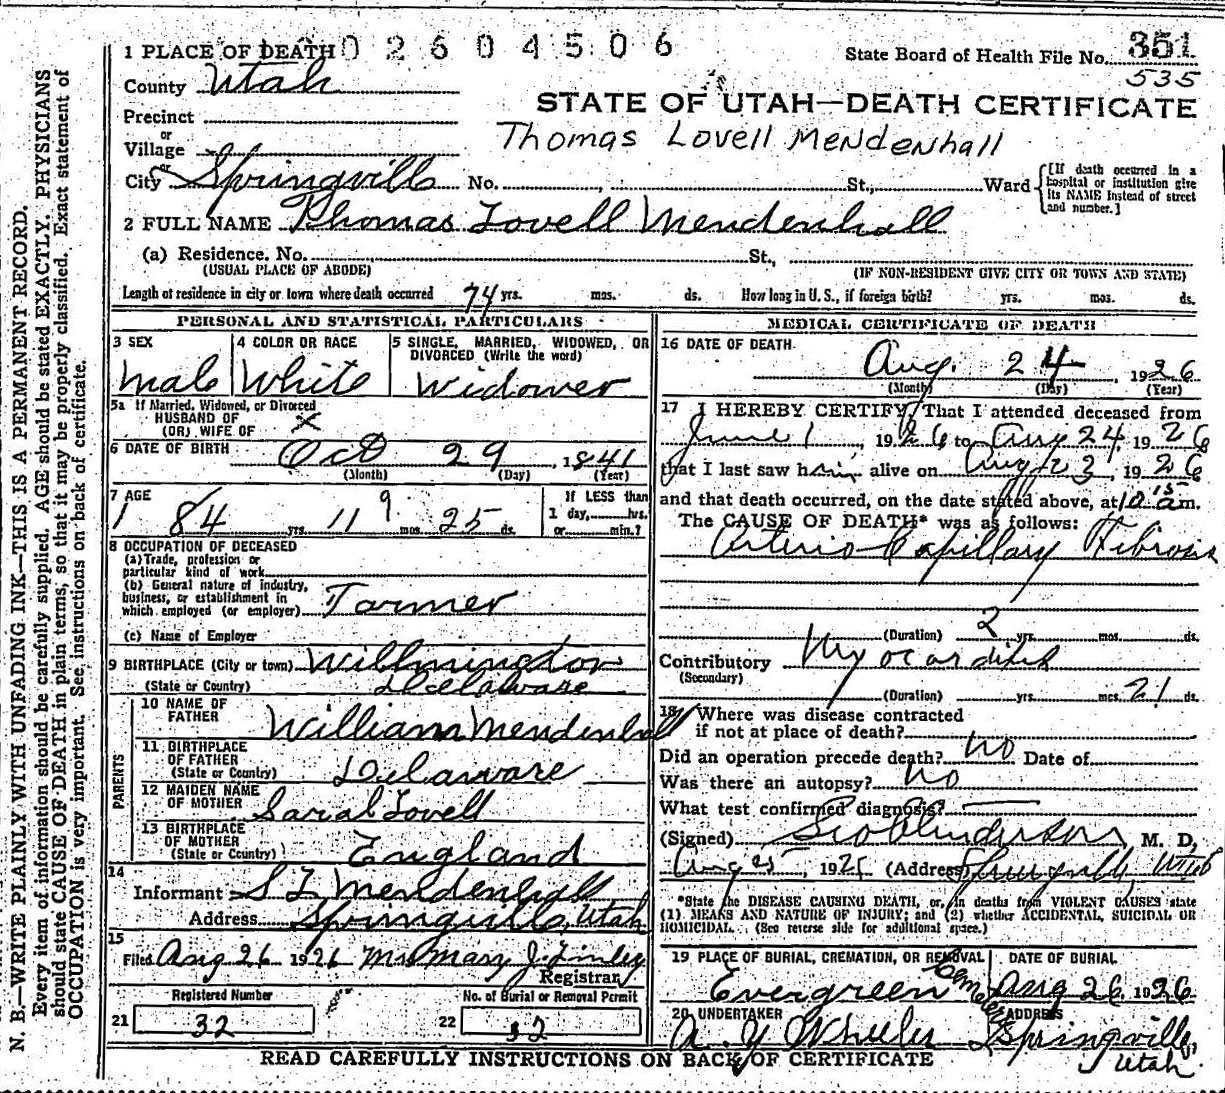 1 PLACE OF DEATH 0 2 6 0 4 5 0 6
State Board of Health File No. 351
535
County Utah
STATE OF UTAH—DEATH CERTIFICATE
Precinct
or
Thomas Lovell Mendenhall
Village
or
City Springville No. , St., Ward
[If death occurred in a
hospital or institution give
its NAME instead of street
and number.]
2 FULL NAME Thomas Lovell Mendenhall
(a) Residence. No. St.,
(USUAL PLACE OF ABODE) (IF NON-RESIDENT GIVE CITY OR TOWN AND STATE)
Length of residence in city or town where death occurred 74 yrs. mos. ds. How long in U. S., if foreign birth? yrs. mos. ds.
PERSONAL AND STATISTICAL PARTICULARS
3 SEX
Male
4 COLOR OR RACE
White
5 SINGLE, MARRIED, WIDOWED, OR
DIVORCED (Write the word)
Widower
5a If Married, Widowed, or Divorced
HUSBAND OF
(OR) WIFE OF X
6 DATE OF BIRTH Oct 29, 1841
(Month) (Day) (Year)
7 AGE
84 yrs. 11 9 mos. 25 ds.
If LESS than
1 day, hrs.
or min.?
8 OCCUPATION OF DECEASED
(a) Trade, profession or
particular kind of work
(b) General nature of industry,
business, or establishment in
which employed (or employer) Farmer
(c) Name of Employer
9 BIRTHPLACE (City or town) Willmington
(State or Country) Delaware
PARENTS
10 NAME OF
FATHER William Mendenhall
11 BIRTHPLACE
OF FATHER
(State or Country) Delaware
12 MAIDEN NAME
OF MOTHER Sarah Lovell
13 BIRTHPLACE
OF MOTHER
(State or Country) England
14
Informant S L Mendenhall
Address Springville, Utah
15
Filed Aug 26 1926 Mrs Mary J. Finley
Registrar
Registered Number
21 32
No. of Burial or Removal Permit
22 32
MEDICAL CERTIFICATE OF DEATH
16 DATE OF DEATH
Aug. 24, 1926
(Month) (Day) (Year)
17 I HEREBY CERTIFY, That I attended deceased from
June 1, 1926 to Aug 24, 1926
that I last saw him alive on Aug 23, 1926
and that death occurred, on the date stated above, at 10 15 a m.
The CAUSE OF DEATH* was as follows:
Arterio Capillary Fibrosis
(Duration) 2 yrs. mos. ds.
Contributory Myocarditis
(Secondary)
(Duration) yrs. mos. 21 ds.
18 Where was disease contracted
if not at place of death?
Did an operation precede death? no Date of
Was there an autopsy? no
What test confirmed diagnosis?
(Signed) Geo Anderson, M. D.
Aug 25, 192 (Address) Springville, Utah
*State the DISEASE CAUSING DEATH, or, in deaths from VIOLENT CAUSES state
(1) MEANS AND NATURE OF INJURY; and (2) whether ACCIDENTAL, SUICIDAL OR
HOMICIDAL. (See reverse side for additional space.)
19 PLACE OF BURIAL, CREMATION, OR REMOVAL
Evergreen Cemetery
DATE OF BURIAL
Aug 26, 1926
20 UNDERTAKER
A. Y. Wheeler
ADDRESS
Springville,
Utah
READ CAREFULLY INSTRUCTIONS ON BACK OF CERTIFICATE
N. B.—WRITE PLAINLY WITH UNFADING INK—THIS IS A PERMANENT RECORD.
Every item of information should be carefully supplied. AGE should be stated EXACTLY. PHYSICIANS
should state CAUSE OF DEATH in plain terms, so that it may be properly classified. Exact statement of
OCCUPATION is very important. See instructions on back of certificate.